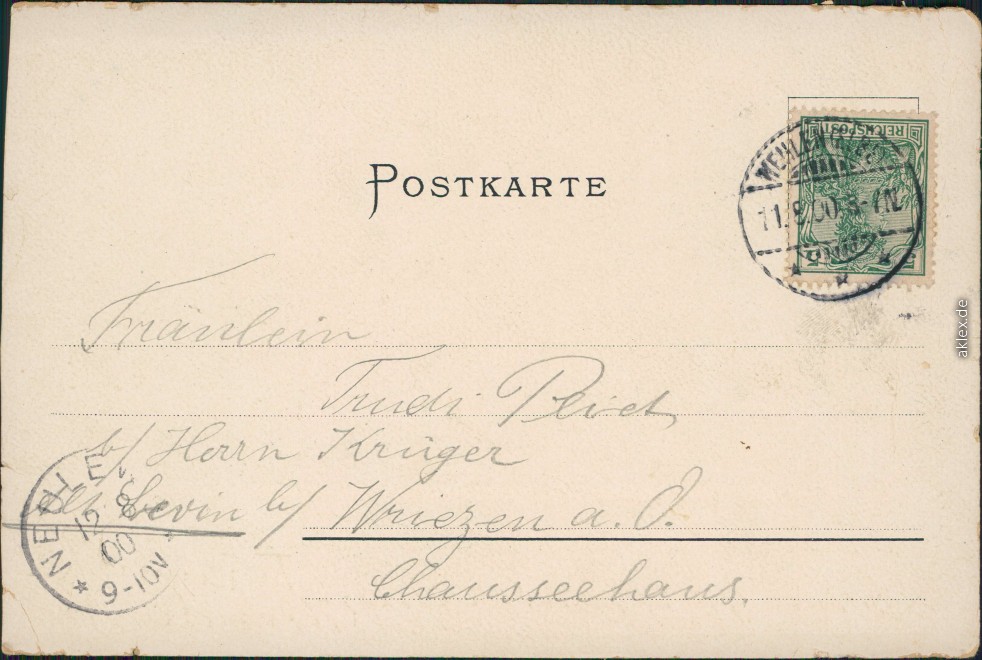 POSTKARTE
REICHSPOST
WEHLEN
11.8.00.
Fräulein
Trudi
b/ Herrn Krüger
Levin b/ Wriezen a. O.
Chausseehaus.
12
00
9-10V
aklex.de